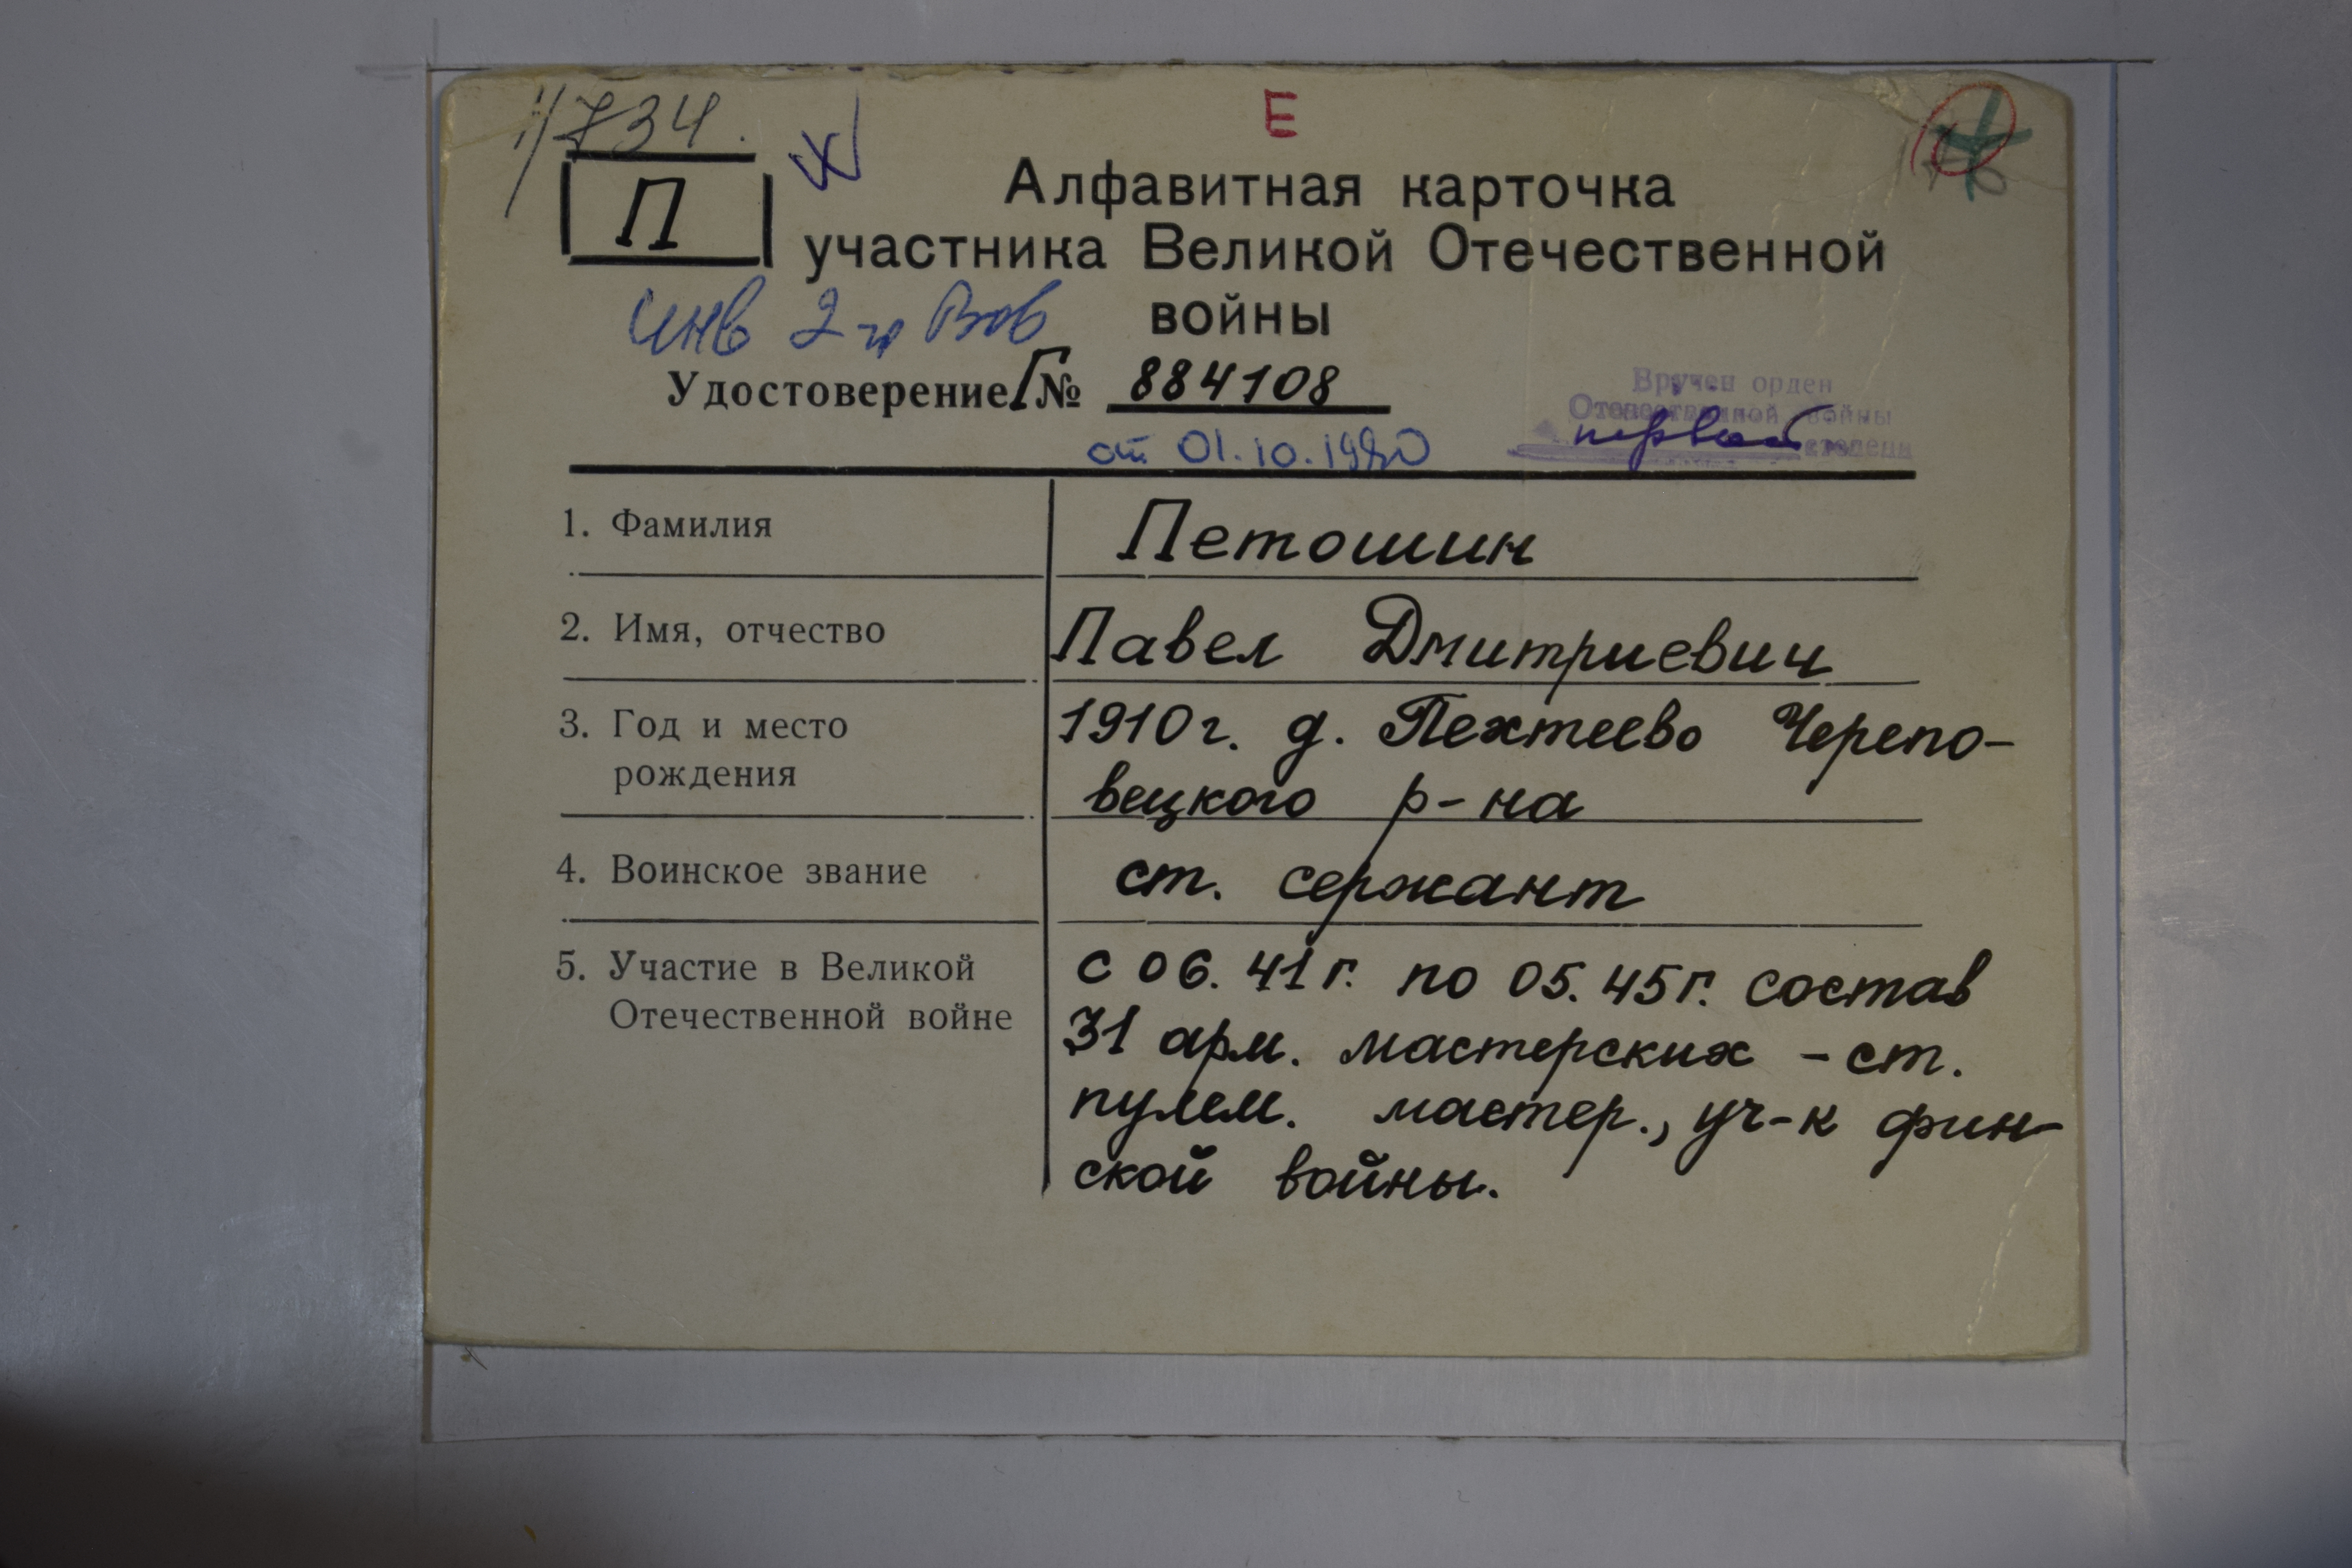 734.
Е
П
Алфавитная карточка
участника Великой Отечественной
войны
инв 2 гр ВОВ
Удостоверение Г № 884108
от 01.10.1980
Вручен орден
Отечественной войны
первой степени
1. Фамилия Петошин
2. Имя, отчество Павел Дмитриевич
3. Год и место 1910г. д. Пехтеево Черепо-
рождения вецкого р-на
4. Воинское звание ст. сержант
5. Участие в Великой с 06.41г. по 05.45г. состав
Отечественной войне 31 арм. мастерских - ст.
пулем. мастер., уч-к фин-
ской войны.